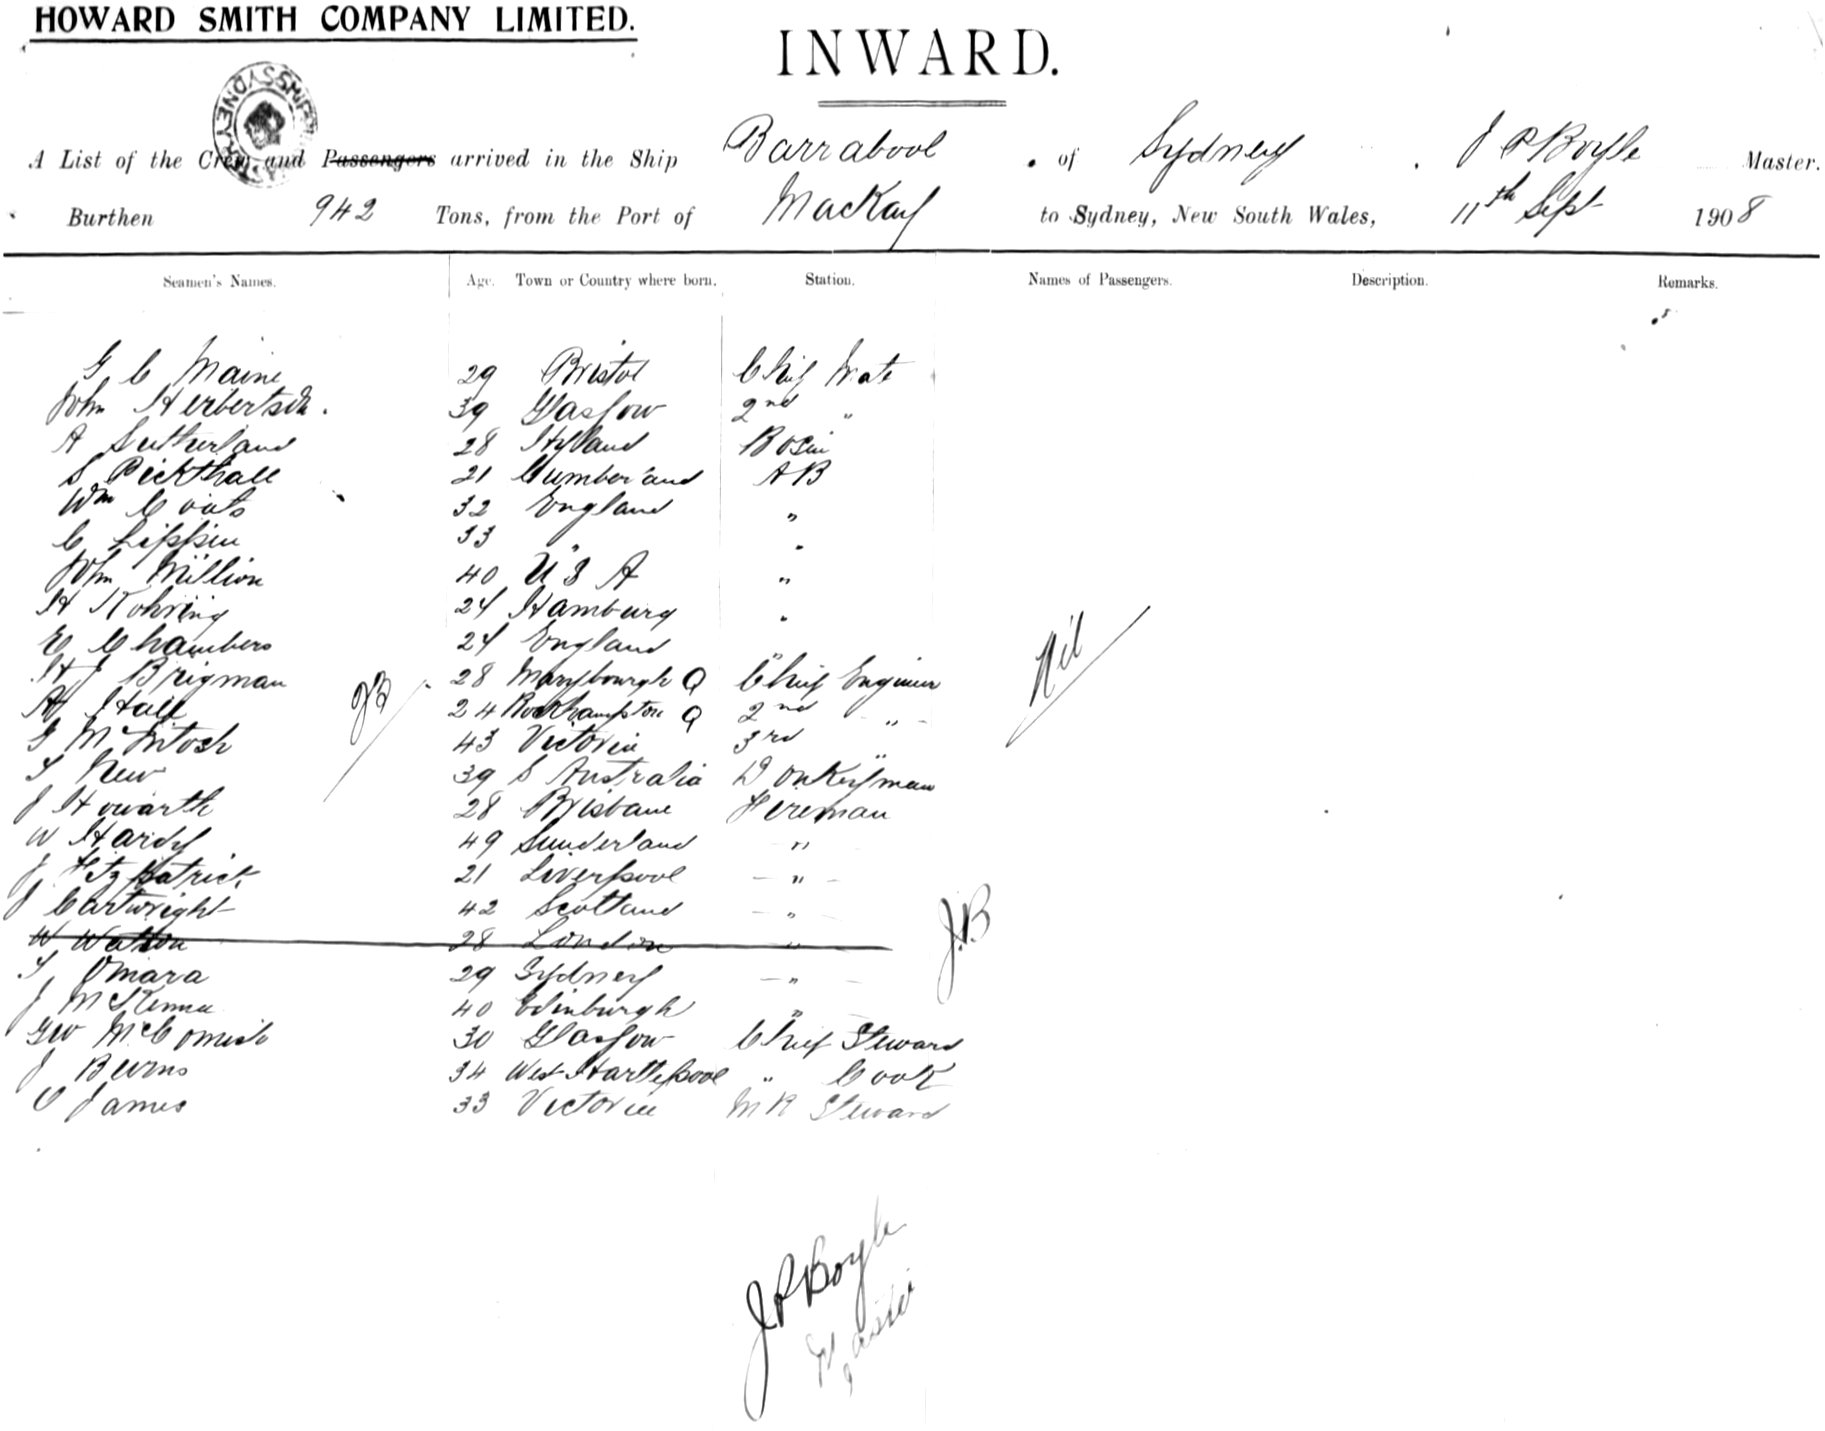 HOWARD SMITH COMPANY LIMITED.
INWARD.
SYDNEY
A List of the Crew and Passengers arrived in the Ship Barrabool of Sydney J P Boyle Master.
Burthen 942 Tons, from the Port of MacKay to Sydney, New South Wales, 11th Sept 1908
Seamen's Names. Age. Town or Country where born. Station. Names of Passengers. Description. Remarks.
G C Maine 29 Bristol Chief Mate
John Herbertson. 39 Glasgow 2nd "
A Sutherland 28 Bosun
S Pickthall 21 Cumberland AB
Wm Coats 32 England "
C Lippin 33 " "
John Million 40 U S A "
H Rohring 24 Hamburg "
E Chambers 24 England "
H J Brigman 28 Marybourgh Q Chief Engineer
A Hall 24 Rockhampton Q 2nd "
G McIntosh 43 Victoria 3rd "
T New 39 S Australia Donkeyman
J Howarth 28 Brisbane Fireman
W Hardy 49 Sunderland "
J Fitzpatrick 21 Liverpool "
J Cartwright 42 Scotland "
W Watson 28 London "
T Omara 29 Sydney "
J McKenna 40 Edinburgh "
Geo McComish 30 Glasgow Chief Steward
J Burns 34 West Hartlepool " Cook
C James 33 Victoria M R Steward
22
Nil
J.B
J P Boyle
Master